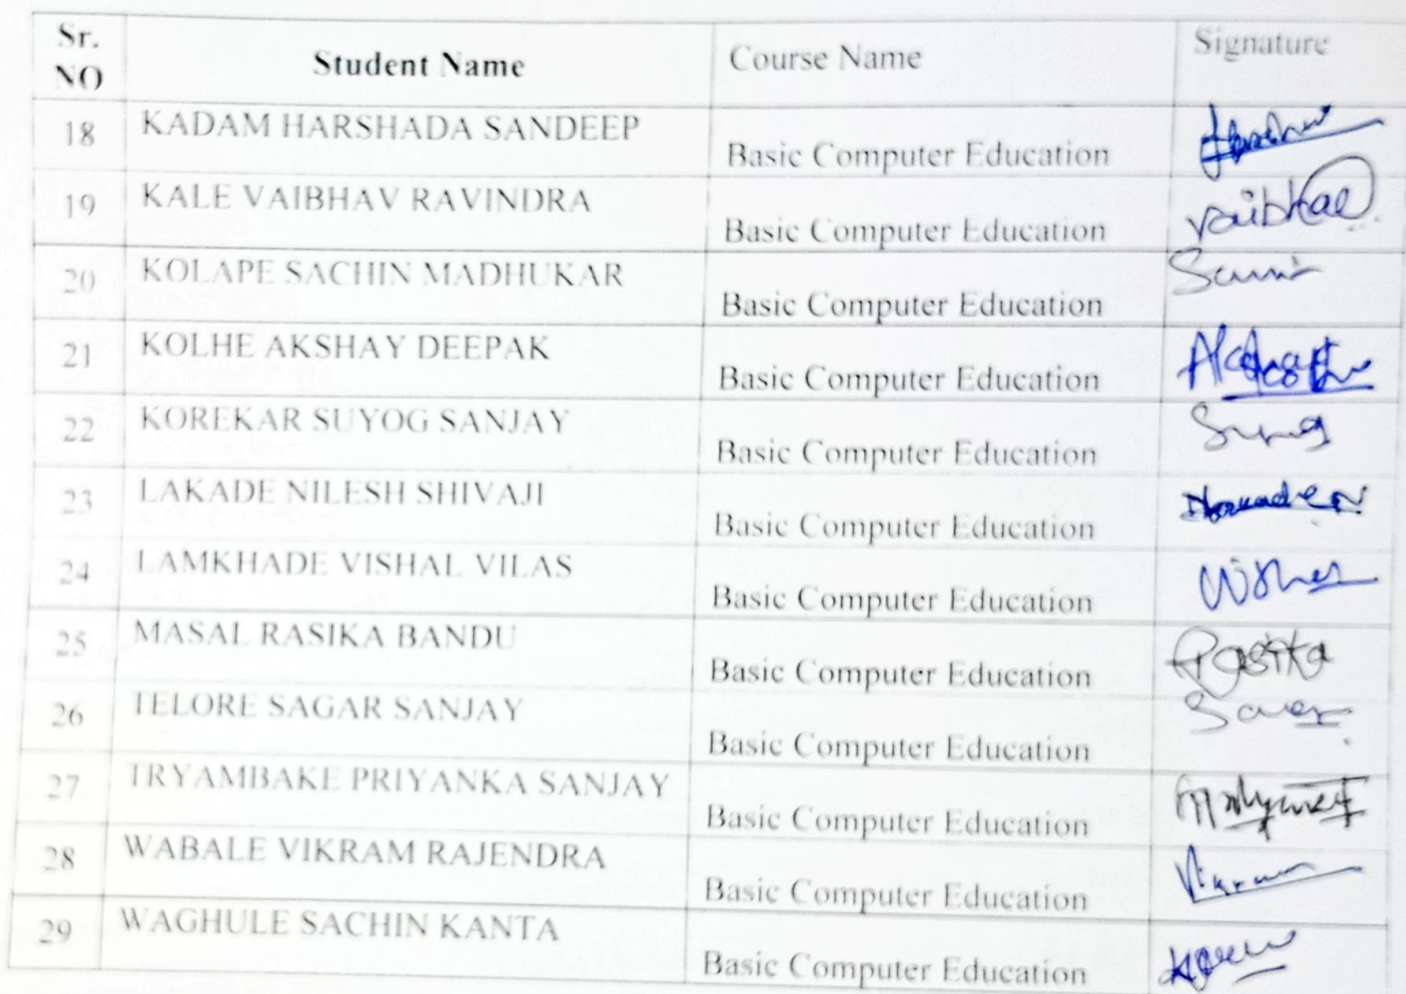 Sr. NO Student Name Course Name Signature
18 KADAM HARSHADA SANDEEP Basic Computer Education
19 KALE VAIBHAV RAVINDRA Basic Computer Education Vaibhav
20 KOLAPE SACHIN MADHUKAR Basic Computer Education
21 KOLHE AKSHAY DEEPAK Basic Computer Education
22 KOREKAR SUYOG SANJAY Basic Computer Education
23 LAKADE NILESH SHIVAJI Basic Computer Education
24 LAMKHADE VISHAL VILAS Basic Computer Education
25 MASAL RASIKA BANDU Basic Computer Education Rasika
26 TELORE SAGAR SANJAY Basic Computer Education
27 TRYAMBAKE PRIYANKA SANJAY Basic Computer Education
28 WABALE VIKRAM RAJENDRA Basic Computer Education Vikram
29 WAGHULE SACHIN KANTA Basic Computer Education